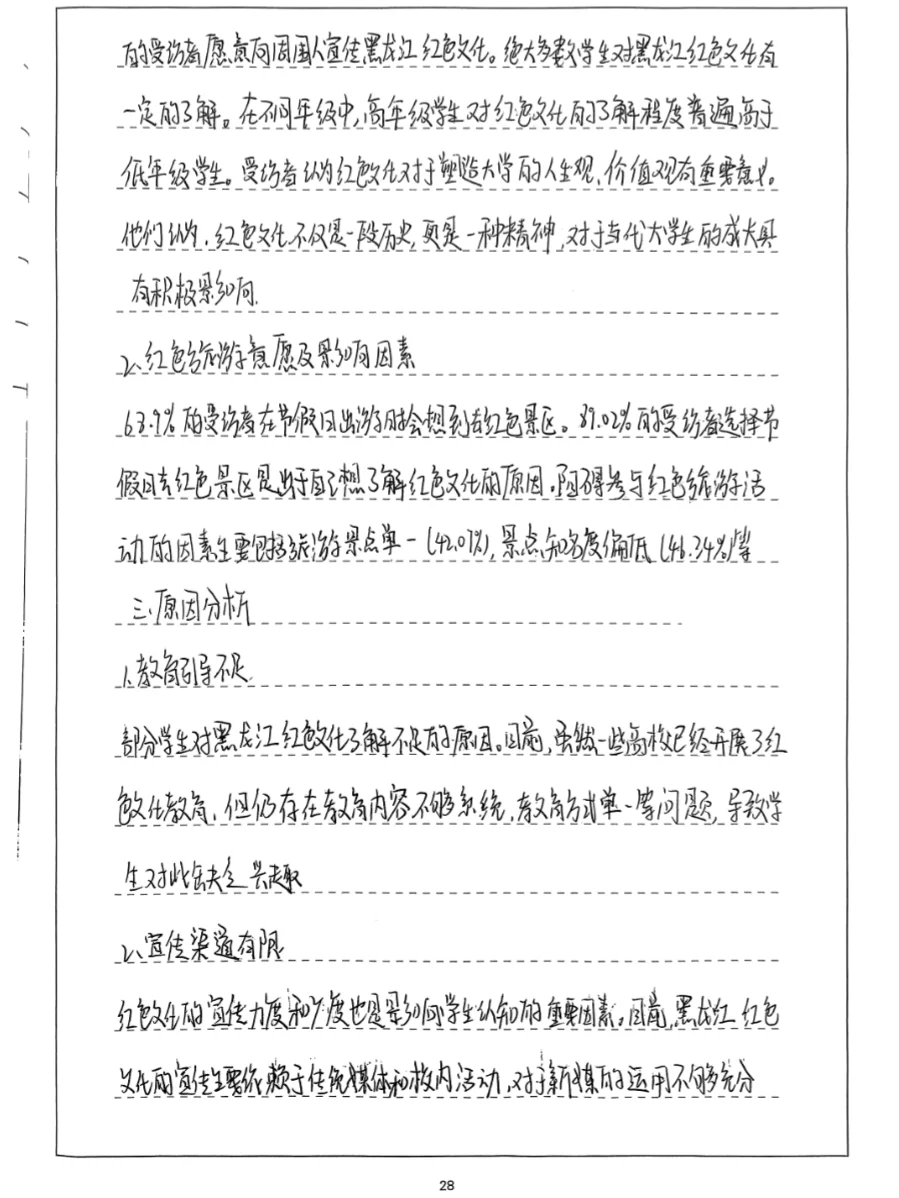 的受访者愿意向周围人宣传黑龙江红色文化。绝大多数学生对黑龙江红色文化有
一定的了解。在不同年级中,高年级学生对红色文化的了解程度普遍高于
低年级学生。受访者认为红色文化对于塑造大学的人生观、价值观有重要意义。
他们认为,红色文化不仅是一段历史,更是一种精神,对于当代大学生的成长具
有积极影响.
2.红色旅游意愿及影响因素
63.9%的受访者在节假日出游时会想到去红色景区。89.02%的受访者选择节
假日去红色景区是出于自己想了解红色文化的原因。阻碍参与红色旅游活
动的因素主要包括旅游景点单一(42.07%),景点知名度偏低(46.34%)等
三.原因分析
1.教育引导不足.
部分学生对黑龙江红色文化了解不足的原因。目前,虽然一些高校已经开展了红
色文化教育,但仍存在教育内容不够系统,教育方式单一等问题,导致学
生对此缺乏兴趣
2.宣传渠道有限
红色文化的宣传力度和广度也是影响学生认知的重要因素。目前,黑龙江红色
文化的宣传主要依赖于传统媒体和校内活动,对于新媒的运用不够充分
28